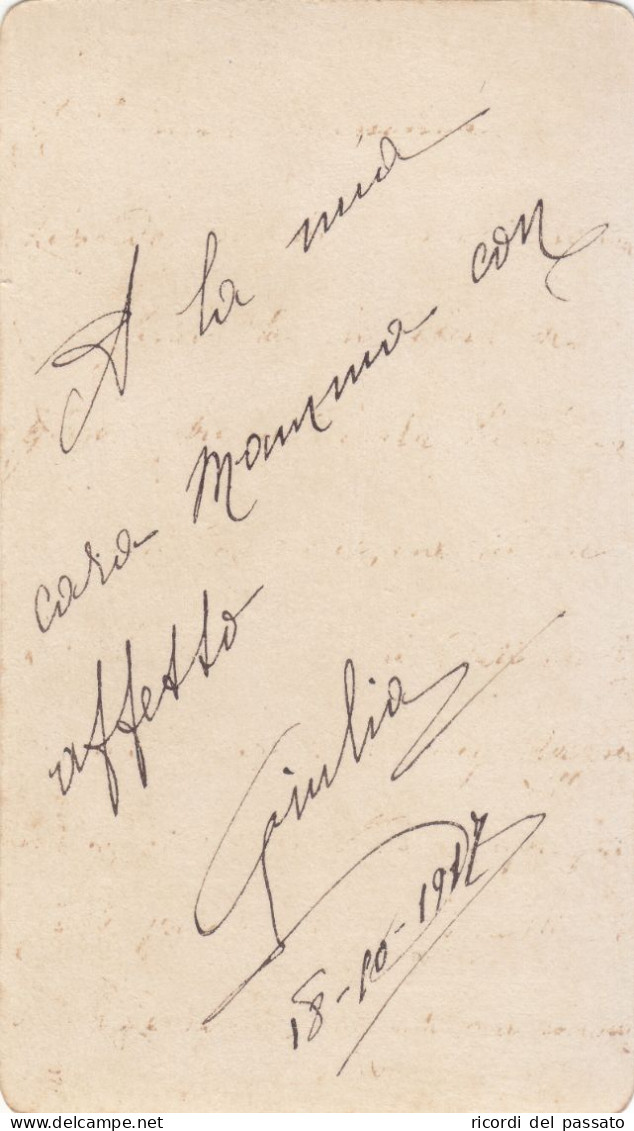 A la mia
cara Mamma con
affetto
Giulia
18-10-1917
delcampe.net
ricordi del passato